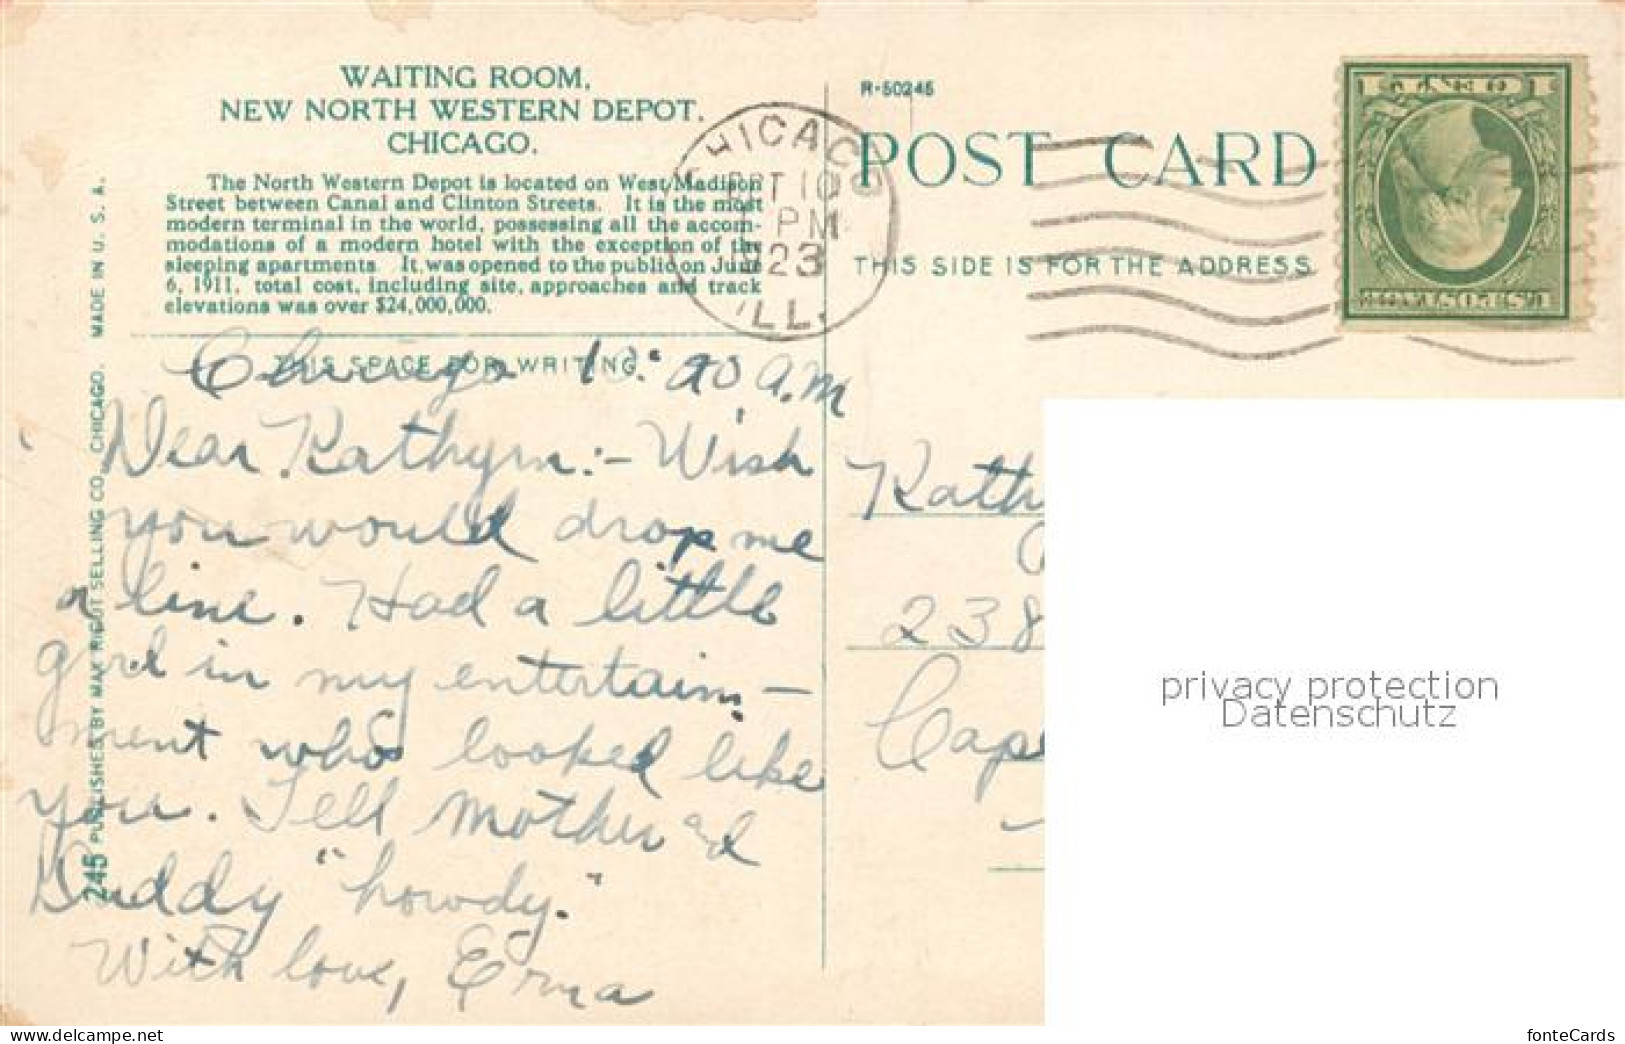 WAITING ROOM,
NEW NORTH WESTERN DEPOT,
CHICAGO.
The North Western Depot is located on West Madison
Street between Canal and Clinton Streets. It is the most
modern terminal in the world, possessing all the accom-
modations of a modern hotel with the exception of the
sleeping apartments. It was opened to the public on June
6, 1911, total cost, including site, approaches and track
elevations was over $24,000,000.
THIS SPACE FOR WRITING
Chicago 10:20 A.M
Dear Kathyrn:- Wish
you would drop me
a line. Had a little
girl in my entertain-
ment who looked like
you. Tell Mother and
Daddy "howdy."
With love, Erna
245 PUBLISHED BY MAX RIGOT SELLING CO., CHICAGO. MADE IN U. S. A.
R-50245
POST CARD
THIS SIDE IS FOR THE ADDRESS
CHICAGO
10
PM
1923
ILL.
1 CENT 1
U.S. POSTAGE
Kathy
238
Cape
privacy protection
Datenschutz
fonteCards
www.delcampe.net